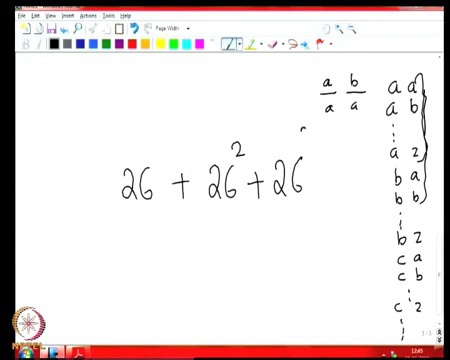 File Edit View Insert Actions Tools Help
Page Width
a b a a
a a a b
a z
26 + 26² + 26
b a
b b
b z
c a
c b
c z
3/3
12:45